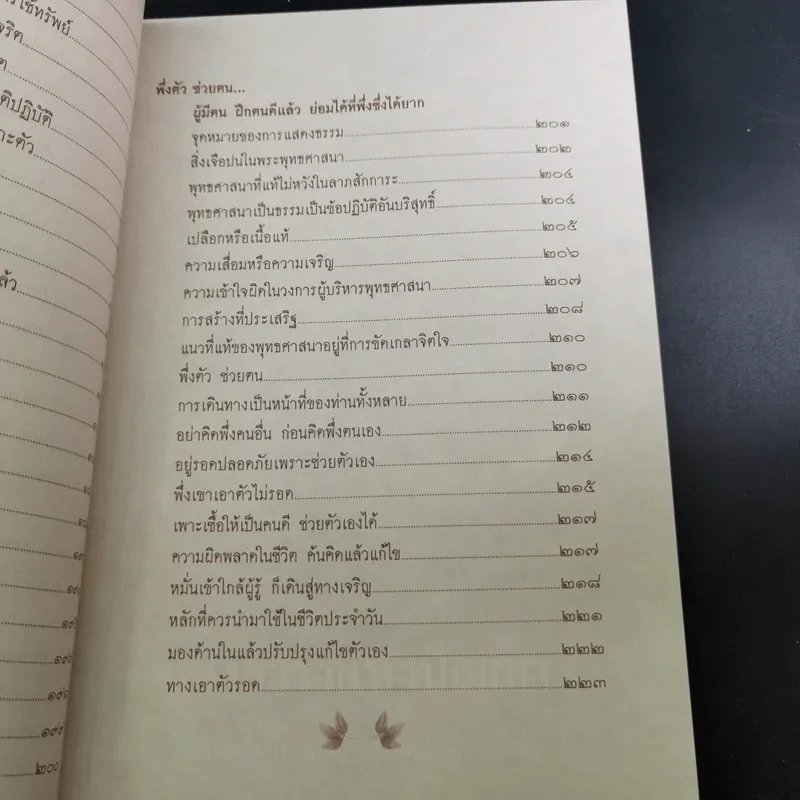 ารใช้ทรัพย์
จริต
ต
ติปฏิบัติ
าะตัว
ล้ว
๑๙๘
๑๙๙
๒๐๐
พึ่งตัว ช่วยตน...
ผู้มีตน ฝึกตนดีแล้ว ย่อมได้ที่พึ่งซึ่งได้ยาก
จุดหมายของการแสดงธรรม....๒๐๑
สิ่งเจือปนในพระพุทธศาสนา....๒๐๒
พุทธศาสนาที่แท้ไม่หวังในลาภสักการะ....๒๐๔
พุทธศาสนาเป็นธรรมเป็นข้อปฏิบัติอันบริสุทธิ์....๒๐๔
เปลือกหรือเนื้อแท้....๒๐๕
ความเสื่อมหรือความเจริญ....๒๐๖
ความเข้าใจผิดในวงการผู้บริหารพุทธศาสนา....๒๐๗
การสร้างที่ประเสริฐ....๒๐๘
แนวที่แท้ของพุทธศาสนาอยู่ที่การขัดเกลาจิตใจ....๒๑๐
พึ่งตัว ช่วยตน....๒๑๐
การเดินทางเป็นหน้าที่ของท่านทั้งหลาย....๒๑๑
อย่าคิดพึ่งคนอื่น ก่อนคิดพึ่งตนเอง....๒๑๒
อยู่รอดปลอดภัยเพราะช่วยตัวเอง....๒๑๔
พึ่งเขาเอาตัวไม่รอด....๒๑๕
เพาะเชื้อให้เป็นคนดี ช่วยตัวเองได้....๒๑๗
ความผิดพลาดในชีวิต ค้นคิดแล้วแก้ไข....๒๑๗
หมั่นเข้าใกล้ผู้รู้ ก็เดินสู่ทางเจริญ....๒๑๘
หลักที่ควรนำมาใช้ในชีวิตประจำวัน....๒๒๑
มองด้านในแล้วปรับปรุงแก้ไขตัวเอง....๒๒๒
ทางเอาตัวรอด....๒๒๓